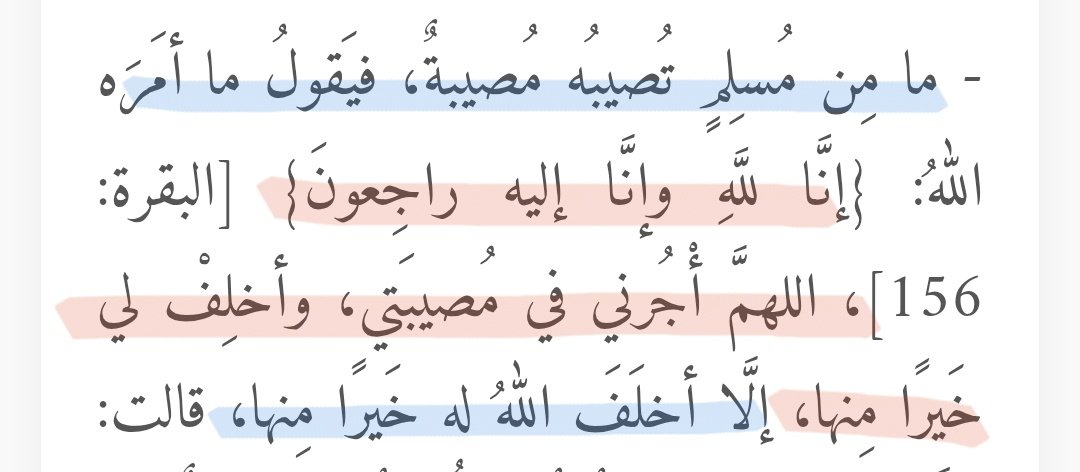 - ما مِن مُسلِمٍ تُصيبُه مُصيبةٌ، فيَقولُ ما أمَرَه
اللهُ: {إنَّا للَّهِ وإنَّا إليه راجِعونَ} [البقرة:
156]، اللهمَّ أْجُرني في مُصيبَتي، وأخلِفْ لي
خَيرًا مِنها، إلَّا أخلَفَ اللهُ له خَيرًا مِنها، قالت: